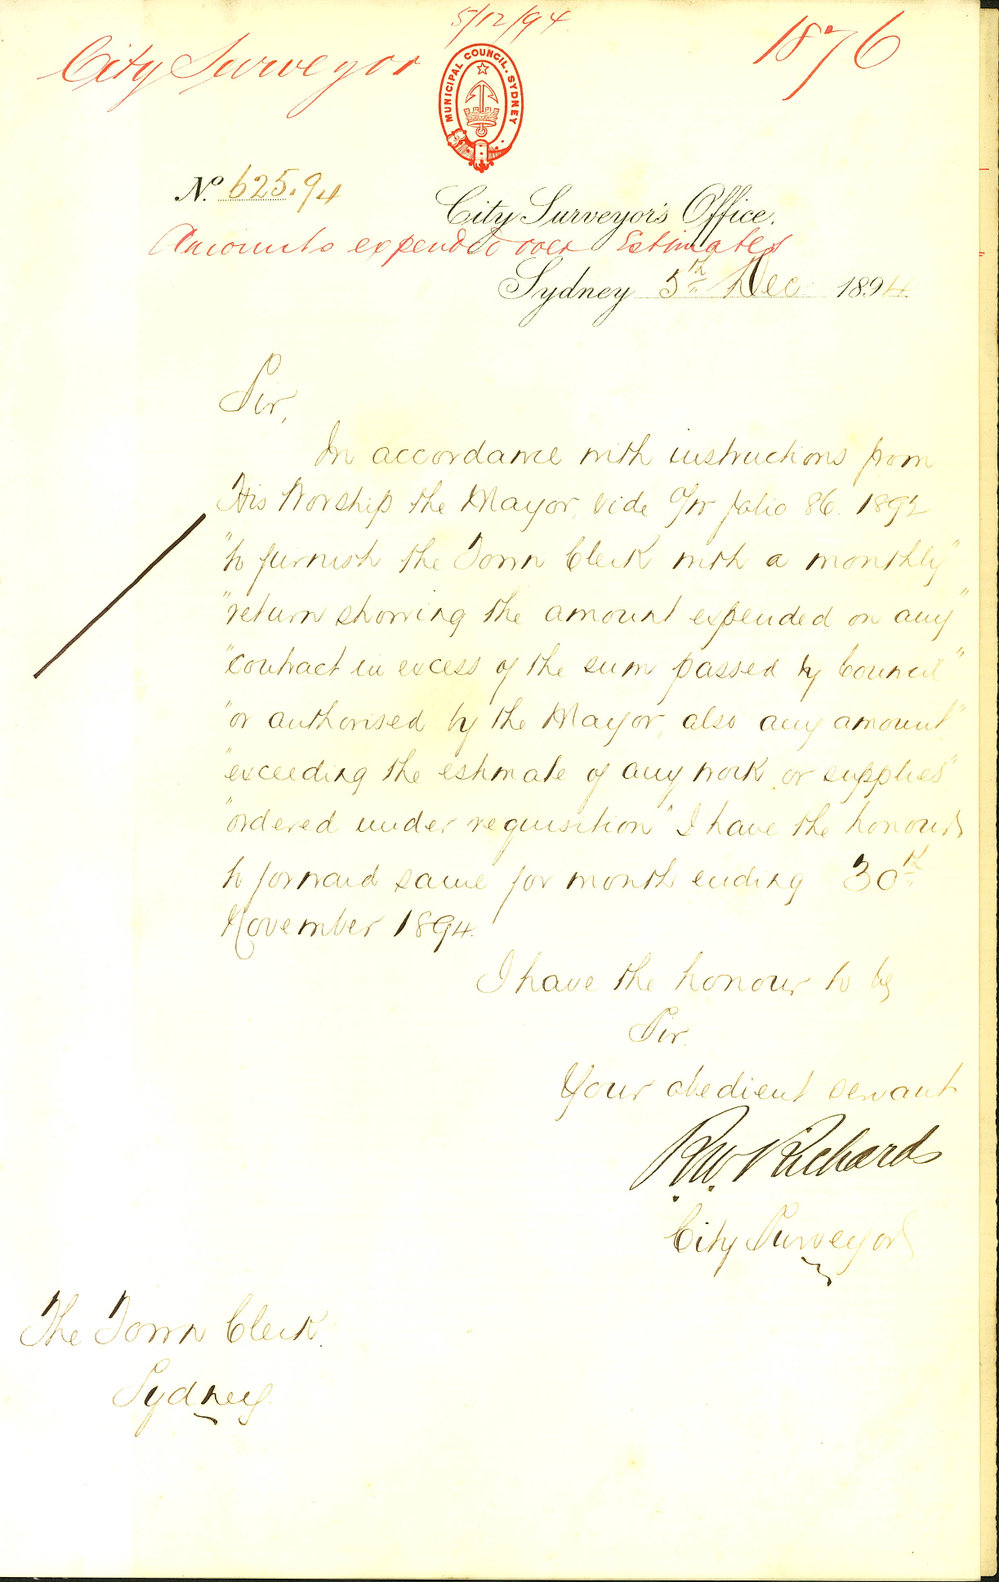 5/12/94
City Surveyor
1876
MUNICIPAL COUNCIL. SYDNEY
No. 625.94
City Surveyor's Office.
Amounts expended over Estimates
Sydney 5th Dec 1894.
Sir,
In accordance with instructions from
His Worship the Mayor, vide folio 86. 1892
"to furnish the Town Clerk with a monthly"
"return showing the amount expended on any"
"contract in excess of the sum passed by Council"
"or authorised by the Mayor, also any amount"
"exceeding the estimate of any work or supplies"
"ordered under requisition" I have the honour
to forward same for month ending 30th
November 1894.
I have the honour to be
Sir.
Your obedient servant
R.W. Richards
City Surveyor
The Town Clerk.
Sydney